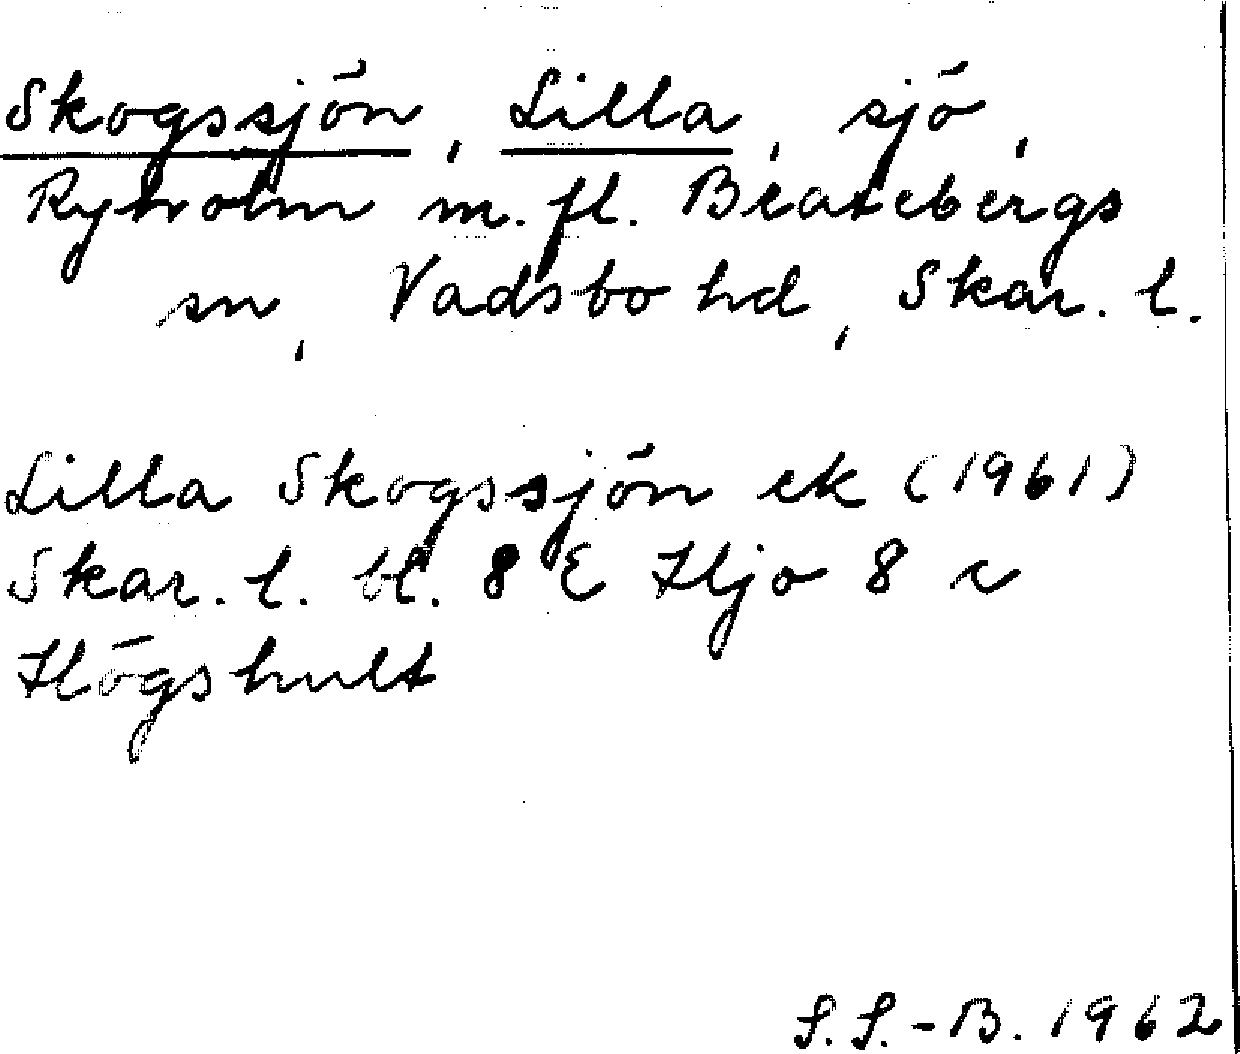 Skogssjön, Lilla, sjö,
Ryholm m.fl. Beatebergs
sn, Vadsbo hd, Skar. l.
Lilla Skogssjön ek (1961)
Skar. l. bl. 8 E Hjo 8 c
Högshult
S.S.-B. 1962